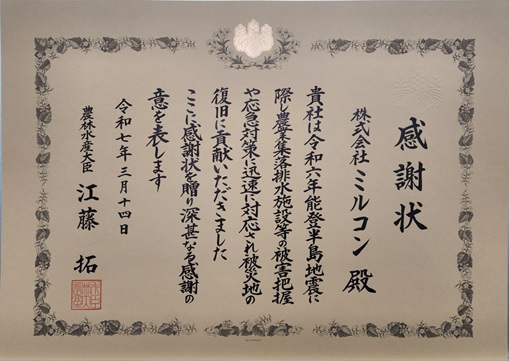 感謝状
株式会社 ミルコン 殿
貴社は令和六年能登半島地震に
際し農業集落排水施設等の被害把握
や応急対策に迅速に対応され被災地の
復旧に貢献いただきました
ここに感謝状を贈り深甚なる感謝の
意を表します
令和七年三月十四日
農林水産大臣 江藤 拓